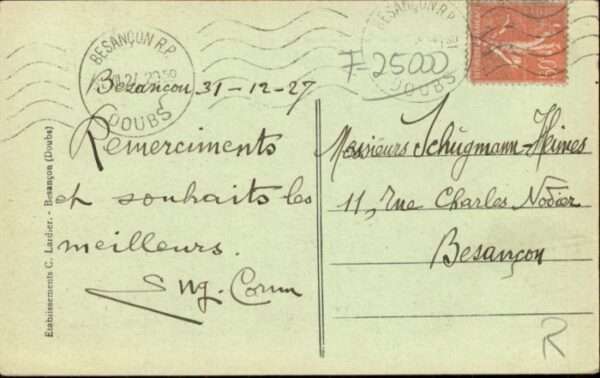 BESANÇON R.P.
DOUBS
BESANÇON R.P.
DOUBS
7=25000
Besançon 31-12-27
Remerciments
et souhaits les
meilleurs.
Messieurs Schugmann-Heimes
11, rue Charles Nodier
Besançon
R
Etablissements C. Lardier. - Besançon (Doubs)